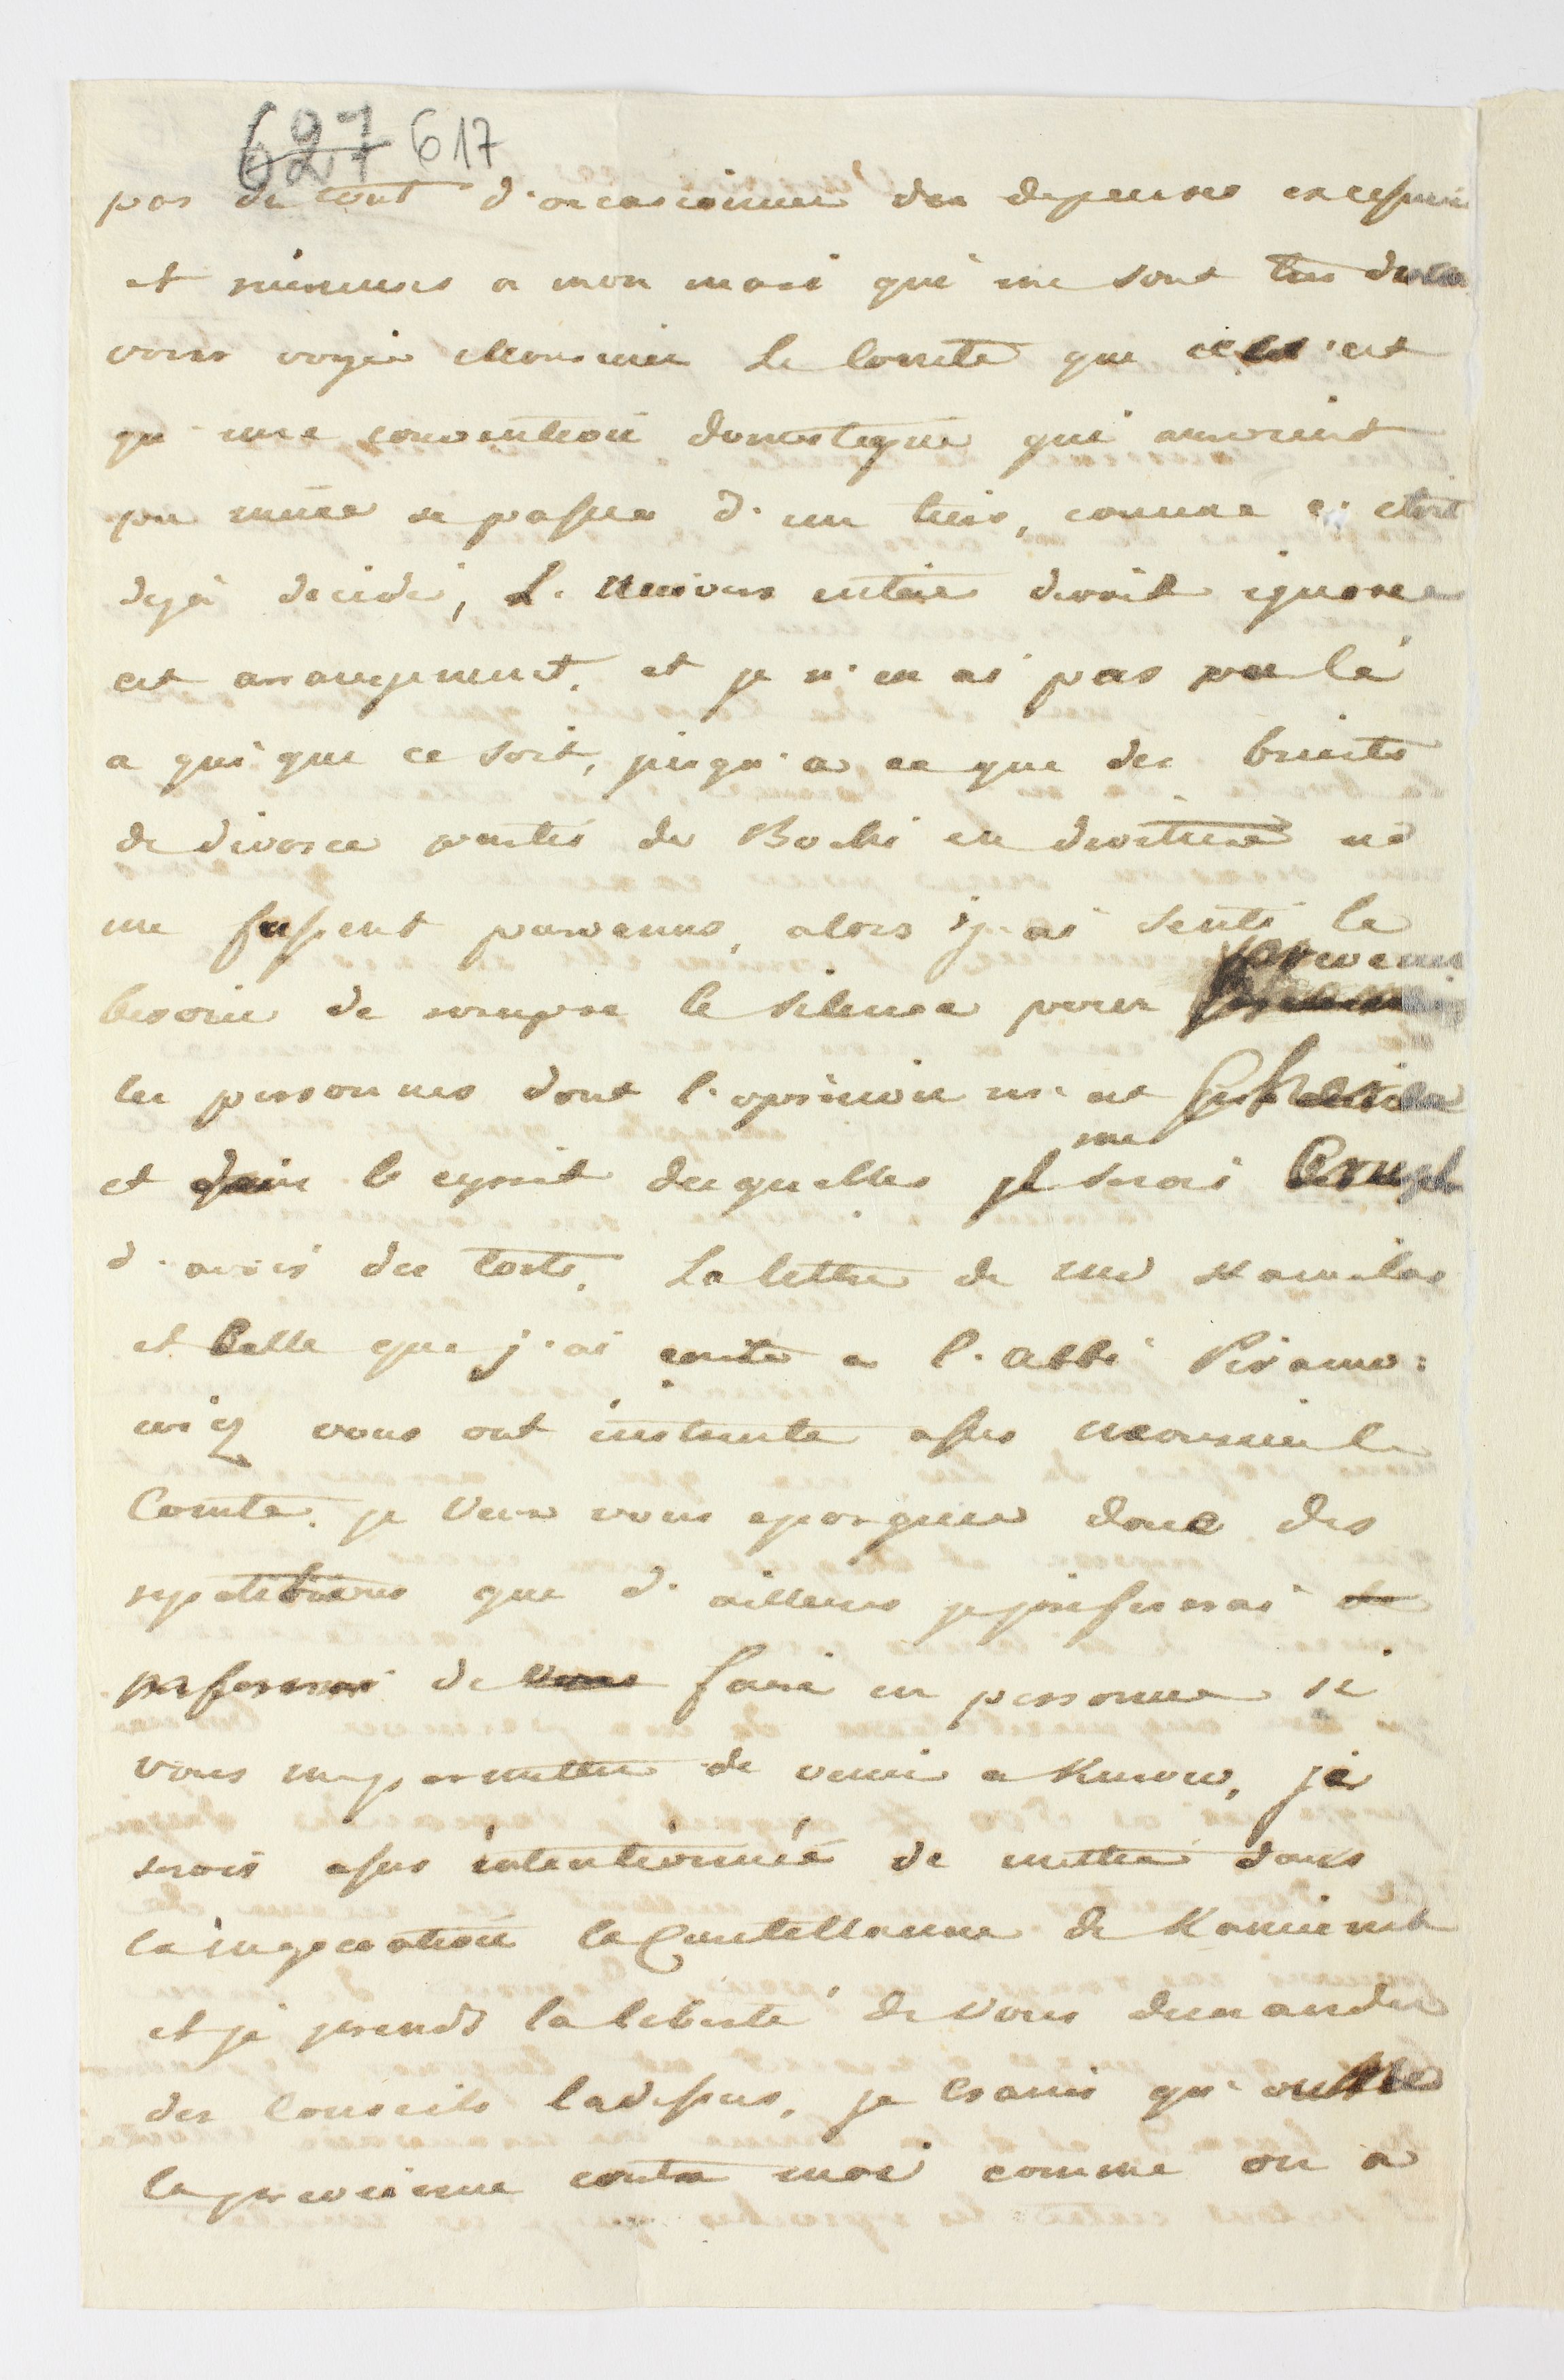 627 617
pas du tout d'occasionner des depenses excessives
et ruineuses a mon mari qui me sont tres
vous voyés Monsieur Le Comte que ce n'est
qu'une convention domestique qui auroient
pu même se passer d'un tiers, comme c'etoit
dejà decidé, L'univers entier devoit ignorer
cet arrangement. et je n'en ai pas parlé
a qui que ce soit, jusqu'a ce que des bruits
de divorce partis de Bochi en droiture ne
me fussent parvenus, alors j'ai senti le
besoin de rompre le silence pour prevenir
les personnes dont l'opinion m'est
et dans le esprit desquelles je me serois
d'avoir des torts. La lettre de md
et celle que j'ai ecrite a l'abbé Piramo:
wicz vous ont instruite assés monsieur le
Comte. je veux vous epargner donc des
repetitions que d'ailleurs je prefererai de
prefererai de vous faire en personne si
vous me permettres de venir a Kurow, je
serois assés intentionnée de mettre dans
la negociation la Castellanne de Kaminiek
et je prends la liberté de vous demander
des conseils ladessus, je crains qu'
la previenne contre moi comme on a